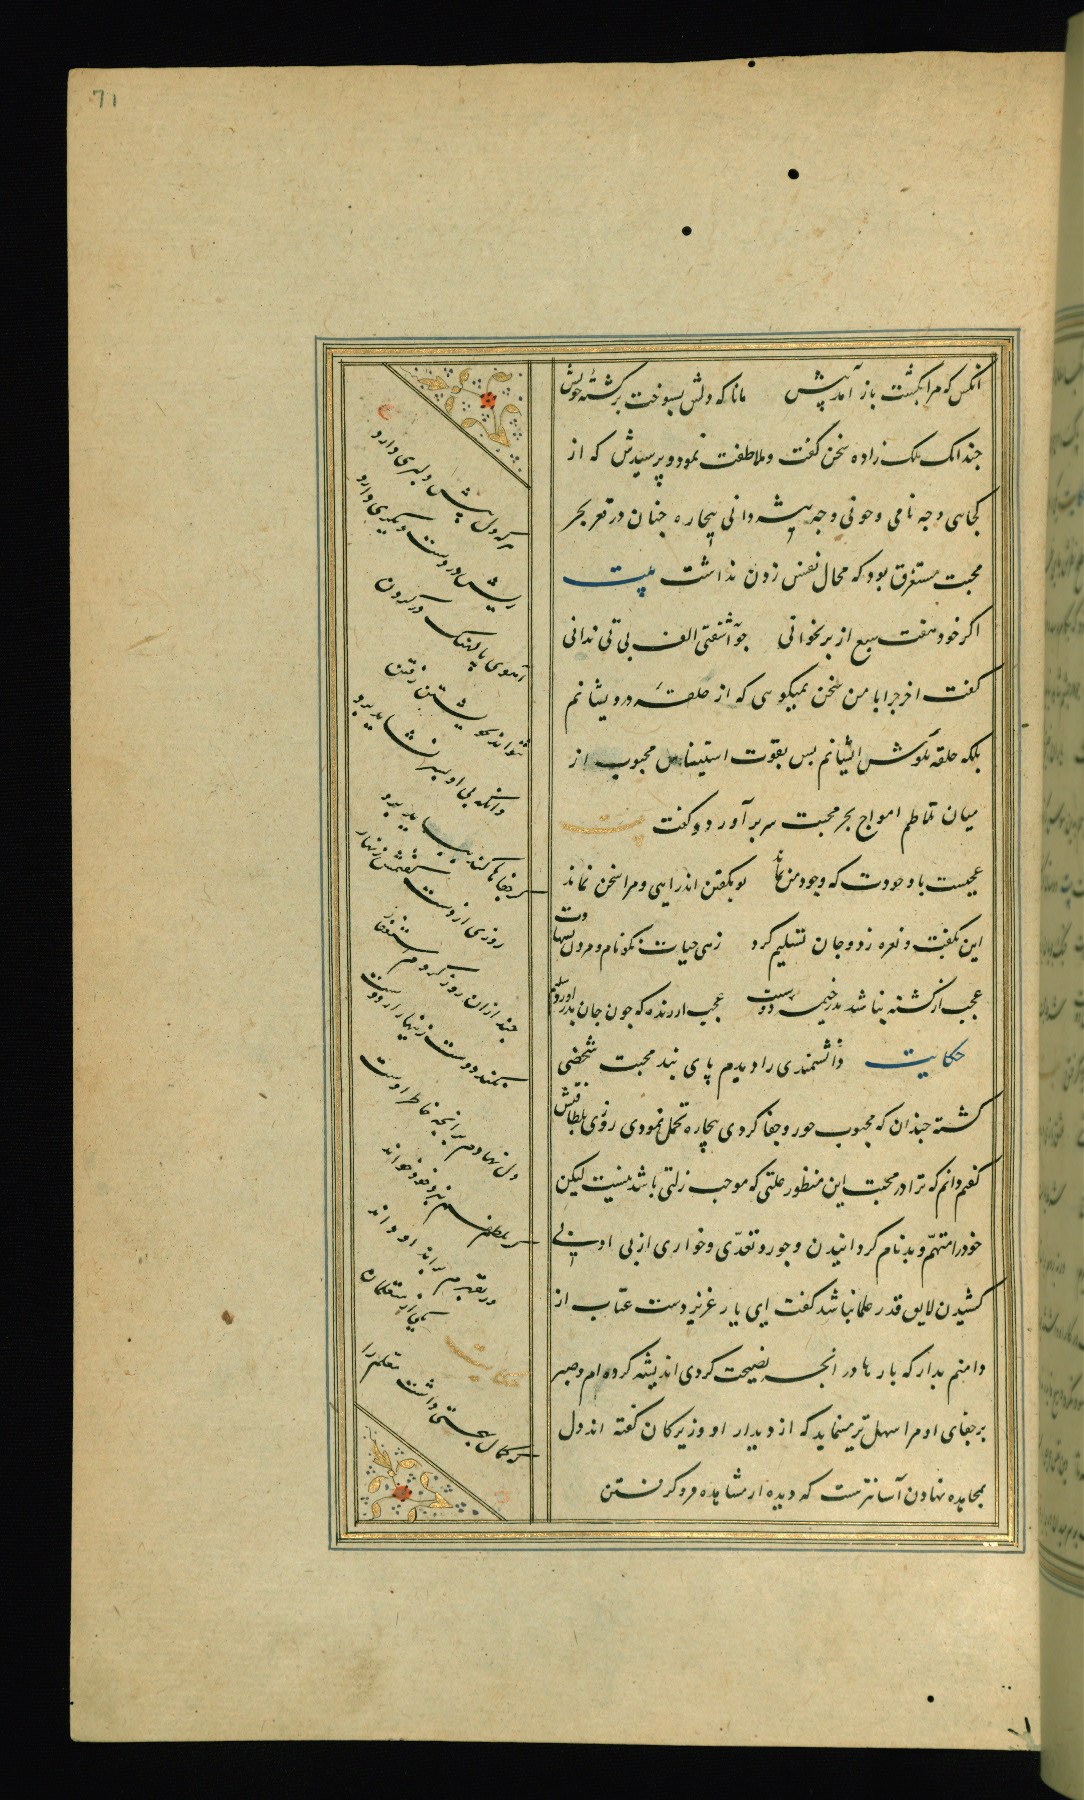 71
انکس که مرا بکشت باز آمد پیش    مانا که دلش بسوخت بر کشتهٔ خویش
جندانک ملک زاده سخن کفت وملاطفت نمود وپرسیدش که از
کجایی وجه نامی وجونی وجه پیشه دانی بیجاره جنان در قعر بحر
محبت مستغرق بود که مجال نفس زدن نداشت بیت
اکر خود هفت سبع از بر بخوانی    جو آشفتی الف بی تی ندانی
کفت اخر جرا با من سخن نمیکویی که از حلقهٔ درویشانم
بلکه حلقه بکوش ایشانم پس بقوت استیناس محبوب از
میان تلاطم امواج بحر محبت سر برآورد و کفت بیت
عجبست با وجودت که وجود من بماند    تو بکفتن اندر ایی و مرا سخن نماند
این بکفت و نعره زد و جان تسلیم کرد
عجب از کشته نباشد بدر خیمه دوست    عجب از زنده که جون جان بدر آورد سلیم
حکایت    دانشمندی را دیدم پای بند محبت شخصی
کشته جندان که محبوب جور وجفا کردی بیجاره تحمل نمودی روزی بلطافتش
کفتم دانم که ترا در محبت این منظور علتی که موجب زلتی باشد نیست لیکن
خودرا متهم و بدنام کردانیدن وجور وتعدی وخواری از بی ادبی
کشیدن لایق قدر علما نباشد کفت ای یار عزیز دست عتاب از
دامنم بدار که بارها در انجه نصیحت کردی اندیشه کرده ام وصبر
بر جفای او مرا سهل تر مینماید که از دیدار او وزیرکان کفته اند دل
بمجاهده نهادن آسانترست که دیده از مشاهده فرو کرفتن
هرکه دل پیش دلبری دارد
ریش در دست دیکری دارد
آهوی پالهنک در کردن
نتواند بخویشتن رفتن
وانکه بی او بسر نشاید برد
کر جفا ها کند بباید برد
روزی از دست کفتمش زنهار
جند ازان روز کردم استغفار
نکند دوست زینهار از دوست
دل نهادم بر انجه خاطر اوست
کر بلطفم بنزد خود خواند
ور بقهرم براند او داند
حکایت    یکی از متعلمان
که کمال بهجتی داشت معلم را